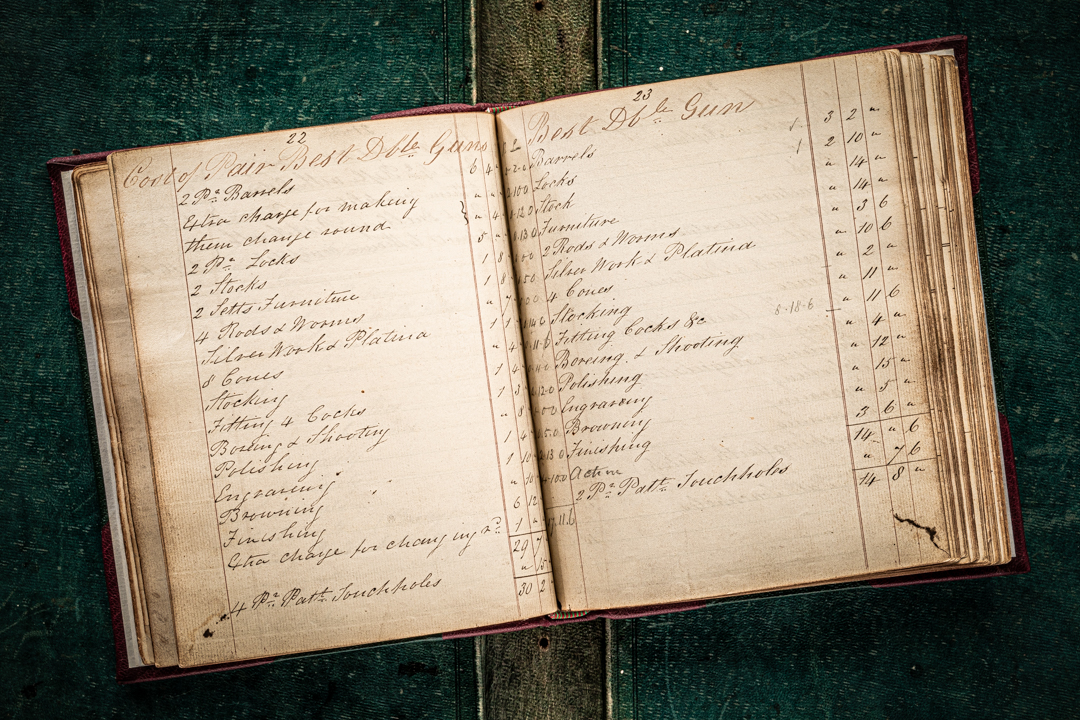 22
Cost of Pair Best Dble Guns
2 Pr Barrels 6 4
Extra charge for making
them change round 4
2 Pr Locks 5
2 Stocks 1 8
2 Setts Furniture 1 8
4 Rods & Worms " 7
Silver Work & Platina 1 1
8 Cones " 4
Stocking 1 4
Fitting 4 Cocks 1 3
Boreing & Shooting " 8
Polishing 1 4
Engraving 1 10
Browning " 10
Finishing 6 12
Extra charge for changing rd 1 "
29 7
4 Pr Patt Touchholes " 15
30 2
23
1 Best Dble Gun
Barrels 3 2 "
Locks 2 10 "
Stock " 14 "
Furniture " 14 "
2 Rods & Worms " 3 6
Silver Work & Platina " 10 6
4 Cones " 2 "
Stocking " 11 "
8-18-6
Fitting Cocks &c " 11 6
Boreing & Shooting " 4 "
Polishing " 12 "
Engraving " 15 "
Browning " 5 "
Finishing 3 6 "
Action 14 " 6
2 Pr Patt Touchholes " 7 6
14 8 "
17.11.6